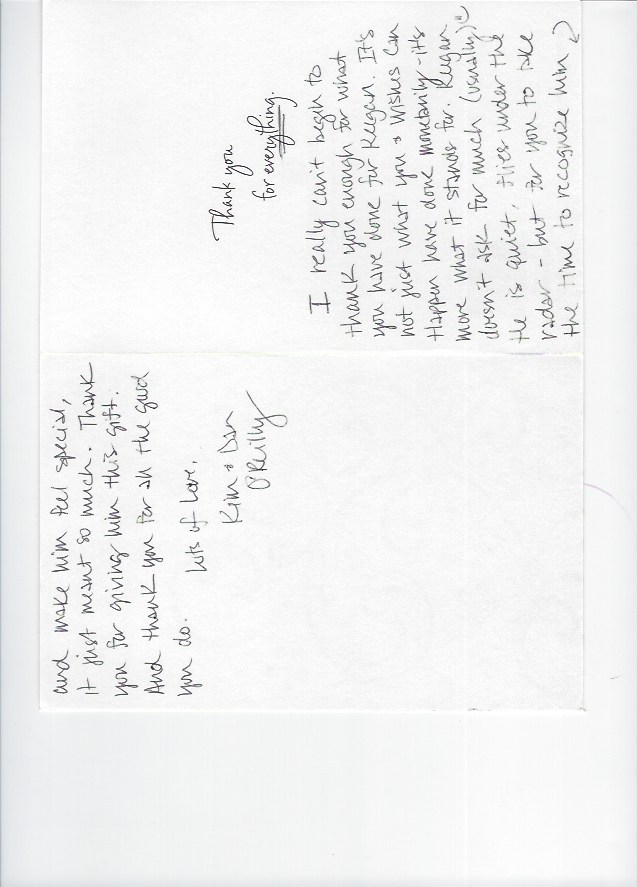 Thank you
for everything.
I really can't begin to
thank you enough for what
you have done for Keegan. It's
not just what you & Wishes Can
Happen have done monetarily - it's
more what it stands for. Keegan
doesn't ask for much (usually)
He is quiet, flies under the
radar - but for you to take
the time to recognize him
and make him feel special,
it just meant so much. Thank
you for giving him this gift.
And thank you for all the good
you do.
Lots of love,
Kim & Dan
O'Reilly